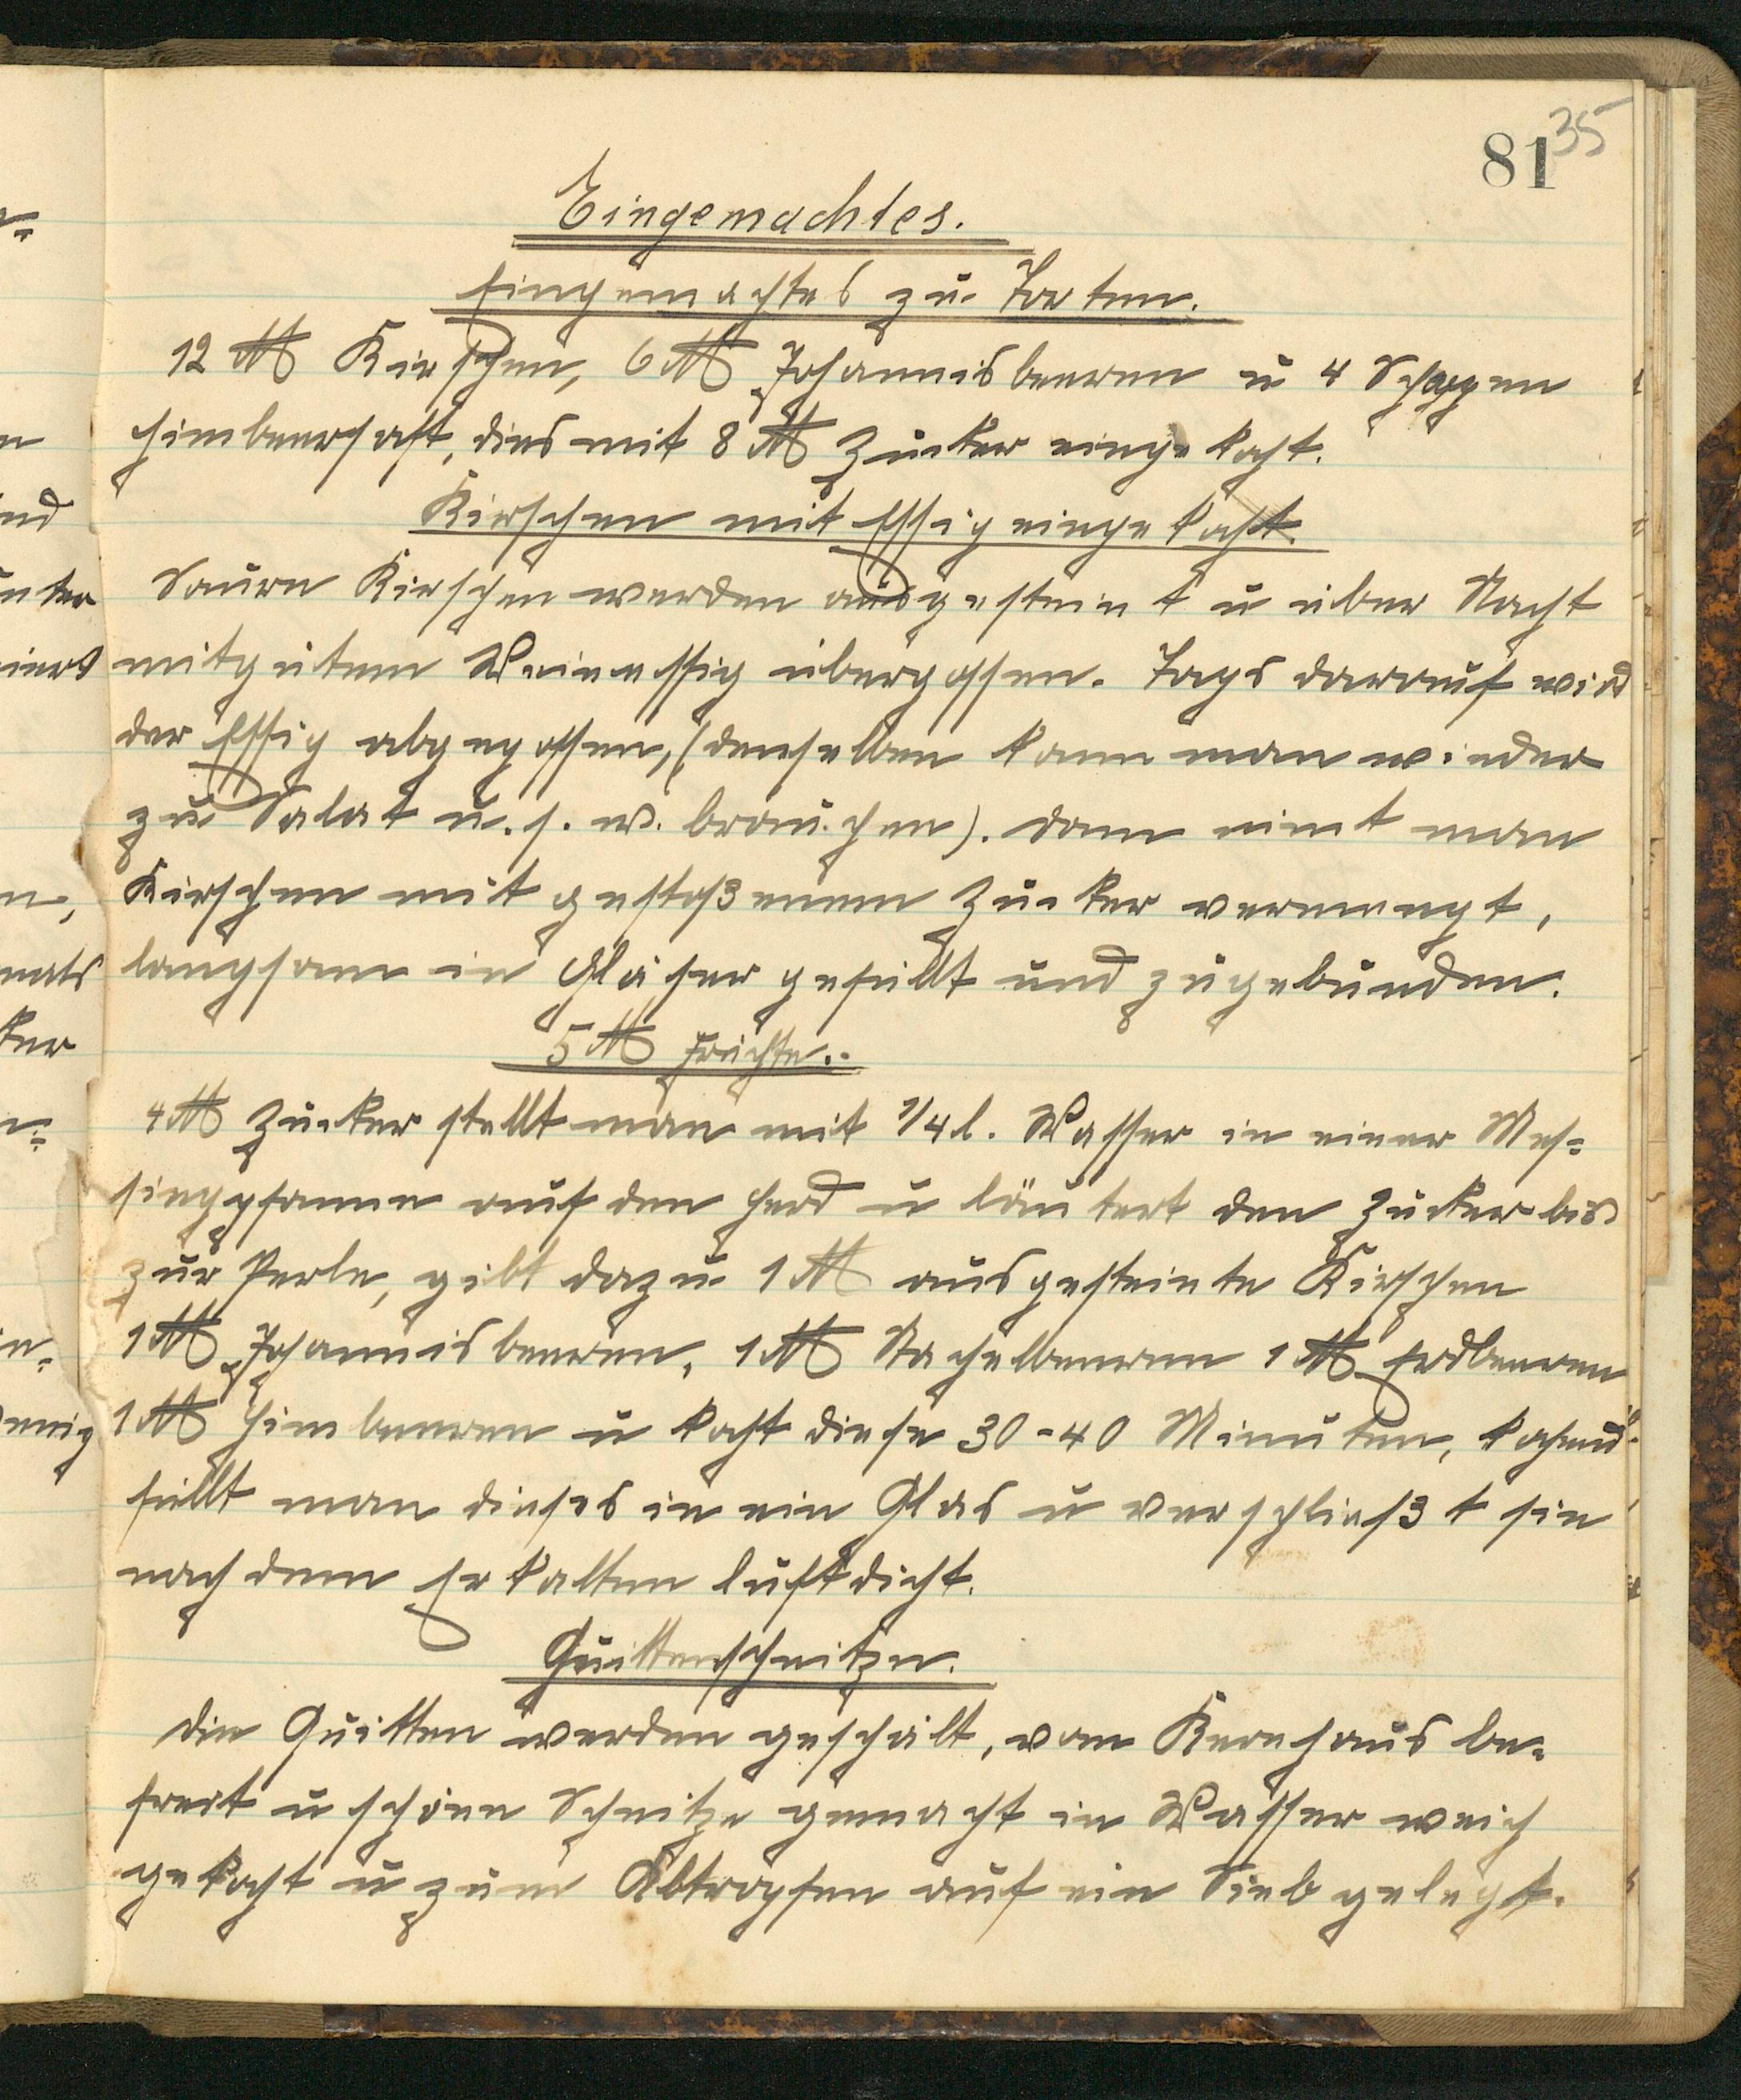 81 35
Eingemachtes.
Eingemachtes zu Torten.
12 ℔ Kirschen, 6 ℔ Johannisbeeren u 4 Schoppen
Himbeersaft, dies mit 8 ℔ Zucker eingekocht.
Kirschen mit Essig eingekocht.
Saure Kirschen werden ausgesteint u über Nacht
mit gutem Weinessig übergossen. Tags darauf wird
der Essig abgegossen, (denselben kann man wieder
zu Salat u. s. w. brauchen). Dann nimt man
Kirschen mit gestoßenem Zucker vermengt,
langsam in Gläser gefüllt und zugebunden.
5 ℔ Früchte.
4 ℔ Zucker stellt man mit 1/4 l. Wasser in einer Mes-
singpfanne auf den Herd u läutert den Zucker bis
zur Perle, gibt dazu 1 ℔ ausgesteinte Kirschen
1 ℔ Johannisbeeren, 1 ℔ Stachelbeeren 1 ℔ Erdbeeren
1 ℔ Himbeeren u kocht diese 30-40 Minuten, kochend
füllt man dieses in ein Glas u verschließt sie
nach dem Erkalten luftdicht.
Quittenschnitze.
Die Quitten werden geschält, vom Kernhaus be-
freit u schöne Schnitze gemacht in Wasser weich
gekocht u zum Abtropfen auf ein Sieb gelegt.